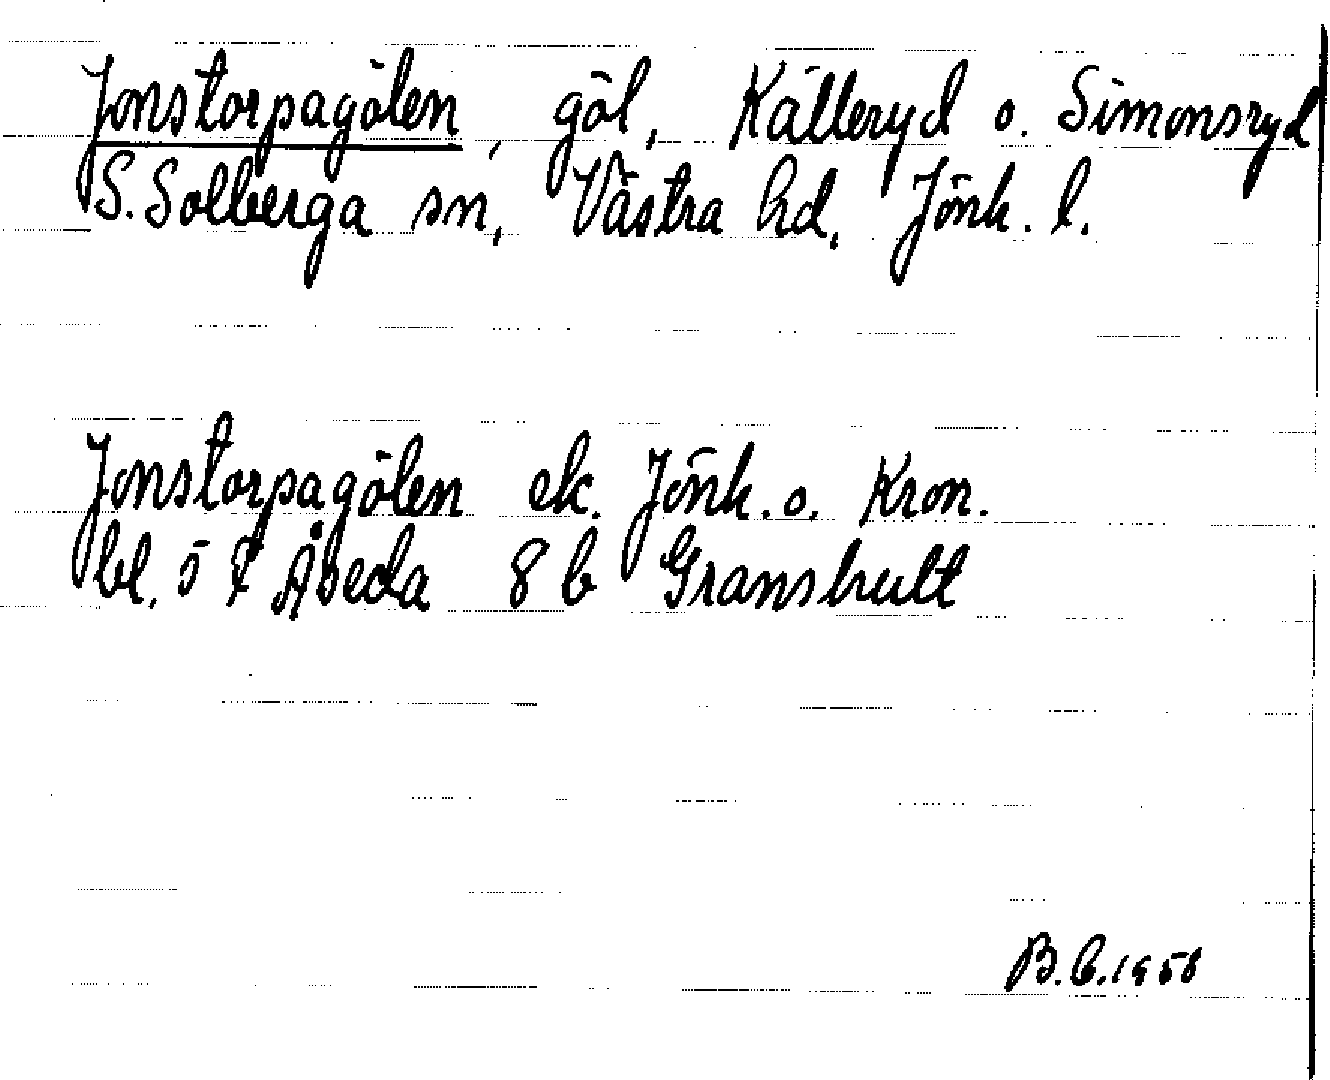 Jonstorpagölen, göl, Källeryd o. Simonsryd
S. Solberga sn, Västra hd, Jönk. l.
Jonstorpagölen ek. Jönk. o. Kron.
bl. 5 Åseda 8 b Granshult
B.C. 1958